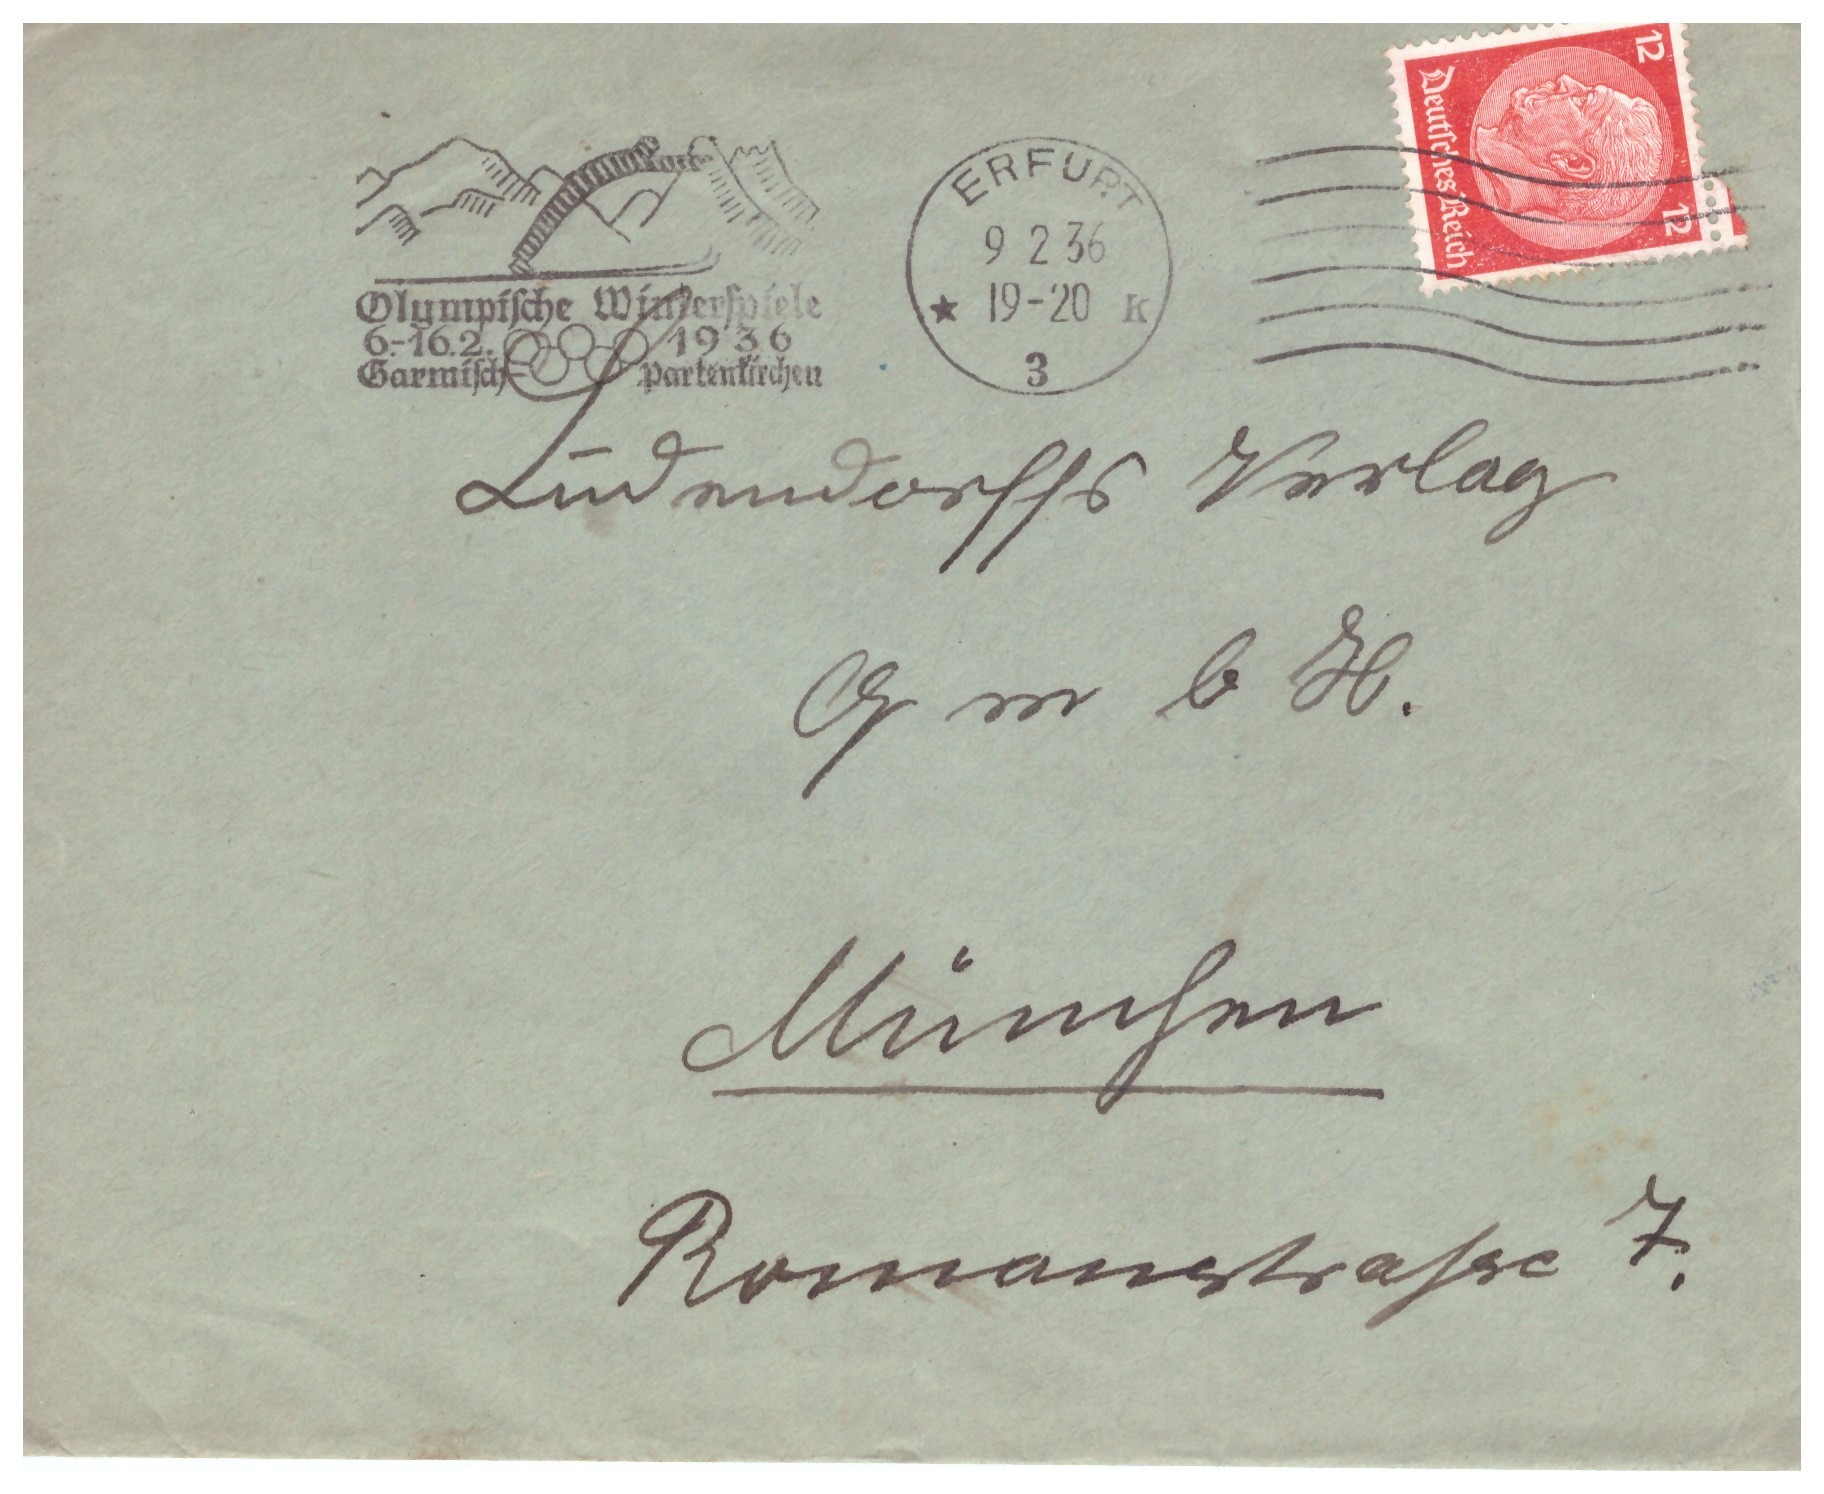 12
Deutsches Reich
12
ERFURT
9 2 36
19-20 k
3
Olympische Winterspiele
6.-16.2. 1936
Garmisch- Partenkirchen
Ludendorffs Verlag
G m b H.
München
Romanstrasse 7.